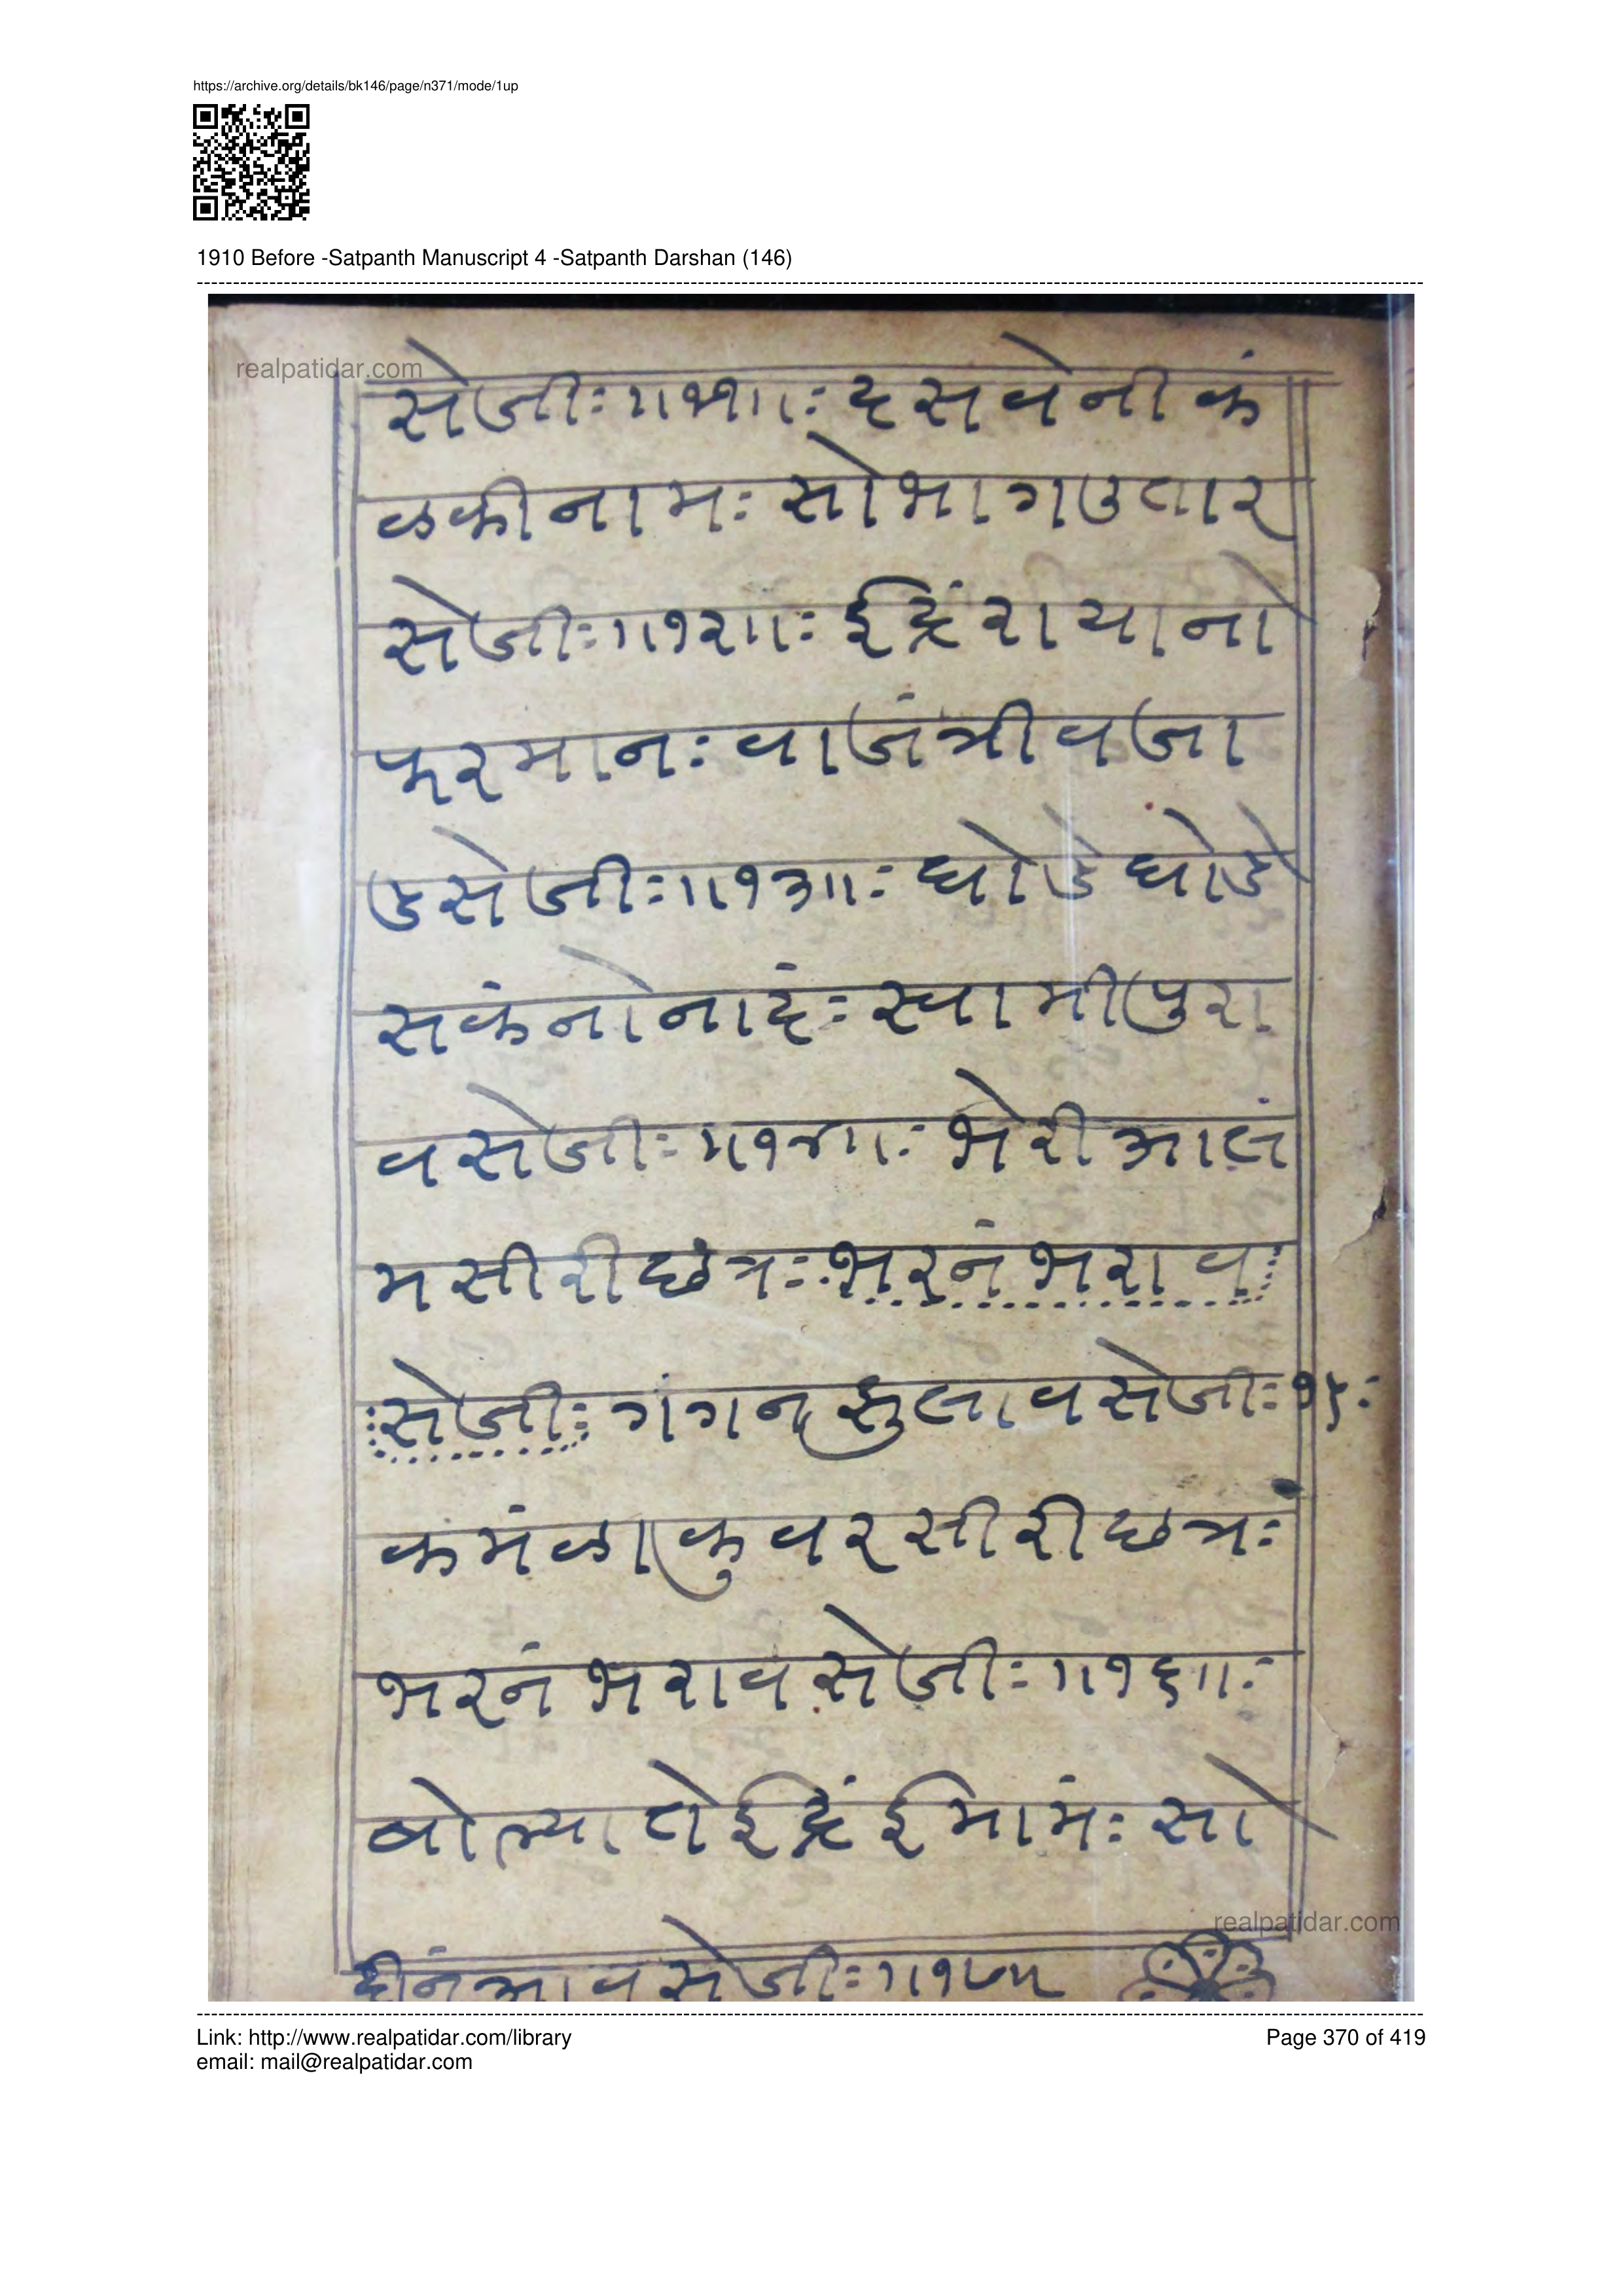 https://archive.org/details/bk146/page/n371/mode/1up
1910 Before -Satpanth Manuscript 4 -Satpanth Darshan (146)
realpatidar.com
सेजीः॥११॥ः दसवेनीकं
ळकीनामः सोभागउतार
सेजीः॥१२॥ः ईंद्रिंरायानो
फरमानः वाजंत्रीवजा
डसेजीः॥१३॥ः घोडेघोडे
सकंनोनादंः स्वामीपुरा
वसेजीः॥१४॥ः भेरीआलं
मसीरीछंत्रः भरनंभरावः
ःसेजीः गंगनझुलावसेजीः१५ः
कमंळाकुवरसीरीछत्रंः
भरनंभरावसेजीः॥१६॥ः
बोल्यातेईंद्रिंईमामंः सो
हीनंआवसेजीः॥१७॥
realpatidar.com
Link: http://www.realpatidar.com/library
Page 370 of 419
email: mail@realpatidar.com